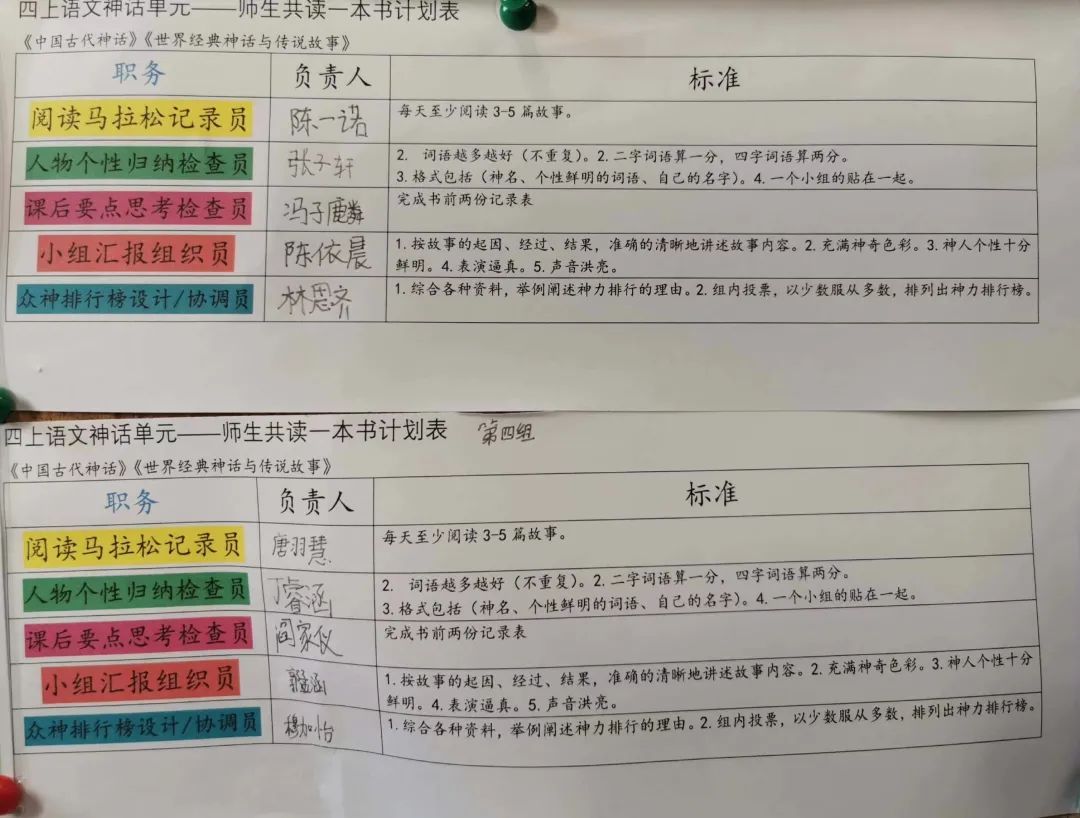 四上语文神话单元——师生共读一本书计划表
《中国古代神话》《世界经典神话与传说故事》
职务 负责人 标准
阅读马拉松记录员 陈一诺 每天至少阅读3-5篇故事。
人物个性归纳检查员 张子轩 2. 词语越多越好（不重复）。2.二字词语算一分，四字词语算两分。
3.格式包括（神名、个性鲜明的词语、自己的名字）。4.一个小组的贴在一起。
课后要点思考检查员 冯子麟 完成书前两份记录表
小组汇报组织员 陈依晨 1.按故事的起因、经过、结果，准确的清晰地讲述故事内容。2.充满神奇色彩。3.神人个性十分
鲜明。4.表演逼真。5.声音洪亮。
众神排行榜设计/协调员 林思齐 1.综合各种资料，举例阐述神力排行的理由。2.组内投票，以少数服从多数，排列出神力排行榜。
四上语文神话单元——师生共读一本书计划表 第四组
《中国古代神话》《世界经典神话与传说故事》
职务 负责人 标准
阅读马拉松记录员 唐羽慧 每天至少阅读3-5篇故事。
人物个性归纳检查员 丁睿涵 2. 词语越多越好（不重复）。2.二字词语算一分，四字词语算两分。
3.格式包括（神名、个性鲜明的词语、自己的名字）。4.一个小组的贴在一起。
课后要点思考检查员 阎家仪 完成书前两份记录表
小组汇报组织员 1.按故事的起因、经过、结果，准确的清晰地讲述故事内容。2.充满神奇色彩。3.神人个性十分
鲜明。4.表演逼真。5.声音洪亮。
众神排行榜设计/协调员 穆加怡 1.综合各种资料，举例阐述神力排行的理由。2.组内投票，以少数服从多数，排列出神力排行榜。